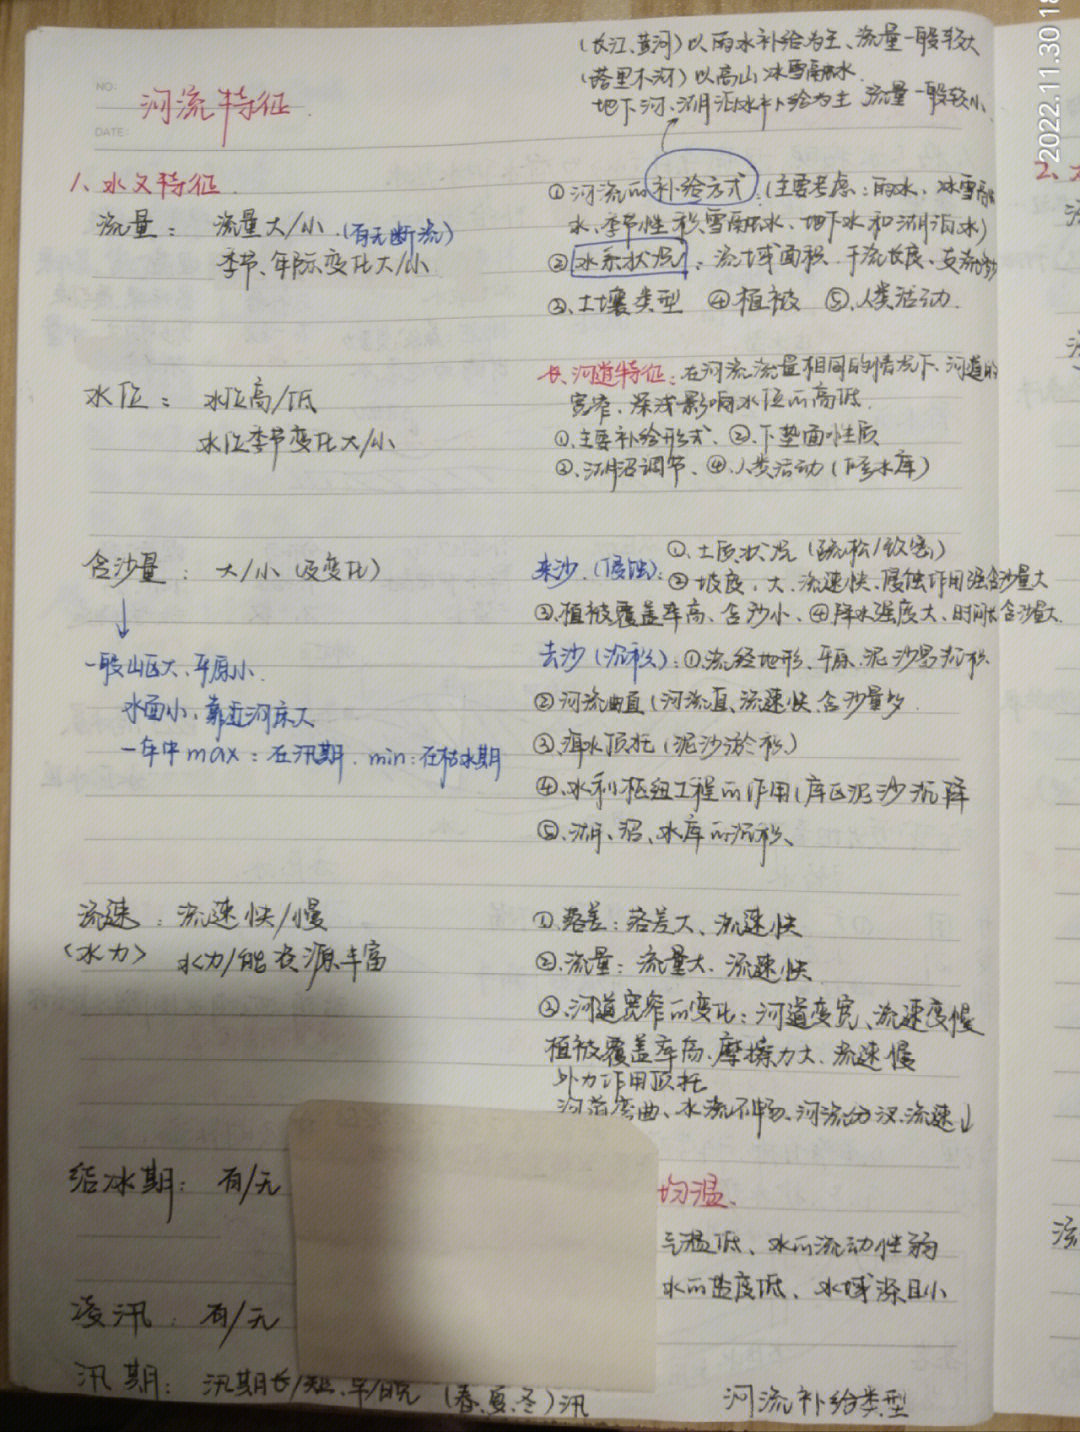 (长江、黄河)以雨水补给为主、流量一般较大
(塔里木河)以高山冰雪融水
地下河、湖泊水补给为主 流量一般较小
2022.11.30 18
NO:
河流特征
DATE:
1、水文特征
流量: 流量大/小 (有无断流)
季节、年际变化大/小
①河流的补给方式:(主要考虑:雨水、冰雪融
水、季节性积雪融水、地下水和湖泊水)
②水系状况:流域面积、干流长度、支流
③、土壤类型 ④植被 ⑤、人类活动.
水位: 水位高/低
水位季节变化大/小
河道特征:在河流流量相同的情况下、河道的
宽窄、深浅影响水位的高低.
①、主要补给形式、②、下垫面性质
③、湖沼调节、④、人类活动(修水库)
含沙量: 大/小(及变化)
一般山区大、平原小.
水面小、靠近河床大
一年中max:在汛期. min:在枯水期
来沙.(侵蚀):①、土质状况(疏松/致密)
②坡度、大、流速快、侵蚀作用强含沙量大
③、植被覆盖率高、含沙小、④降水强度大、时间长含沙量大.
去沙(沉积):①、流经地形、平原、泥沙易沉积.
②河流曲直(河流直、流速快、含沙量多.
③、海水顶托(泥沙淤积)
④、水利枢纽工程的作用(库区泥沙沉降
⑤、湖、沼、水库的沉积、
流速: 流速快/慢
(水力) 水力/能资源丰富
①落差:落差大、流速快
②、流量:流量大、流速快
③、河道宽窄的变化:河道变宽、流速变慢
植被覆盖率高、摩擦力大、流速慢
外力作用顶托
河道弯曲、水流不畅、河流分汊、流速↓
结冰期: 有/无
均温.
气温低、水的流动性弱
水的盐度低、水域深且小
凌汛: 有/无
汛期: 汛期长/短、早/晚 (春、夏、冬)汛
河流补给类型
2、